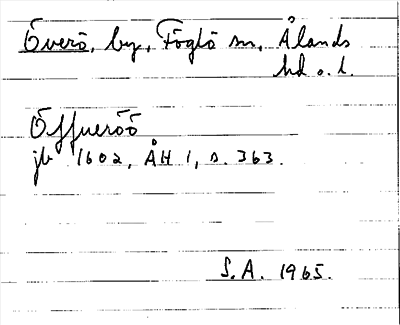 Överö, by, Föglö sn, Ålands
hd o. l.
Öffueröö
jb 1602, ÅH 1, s. 363.
S.A. 1965.